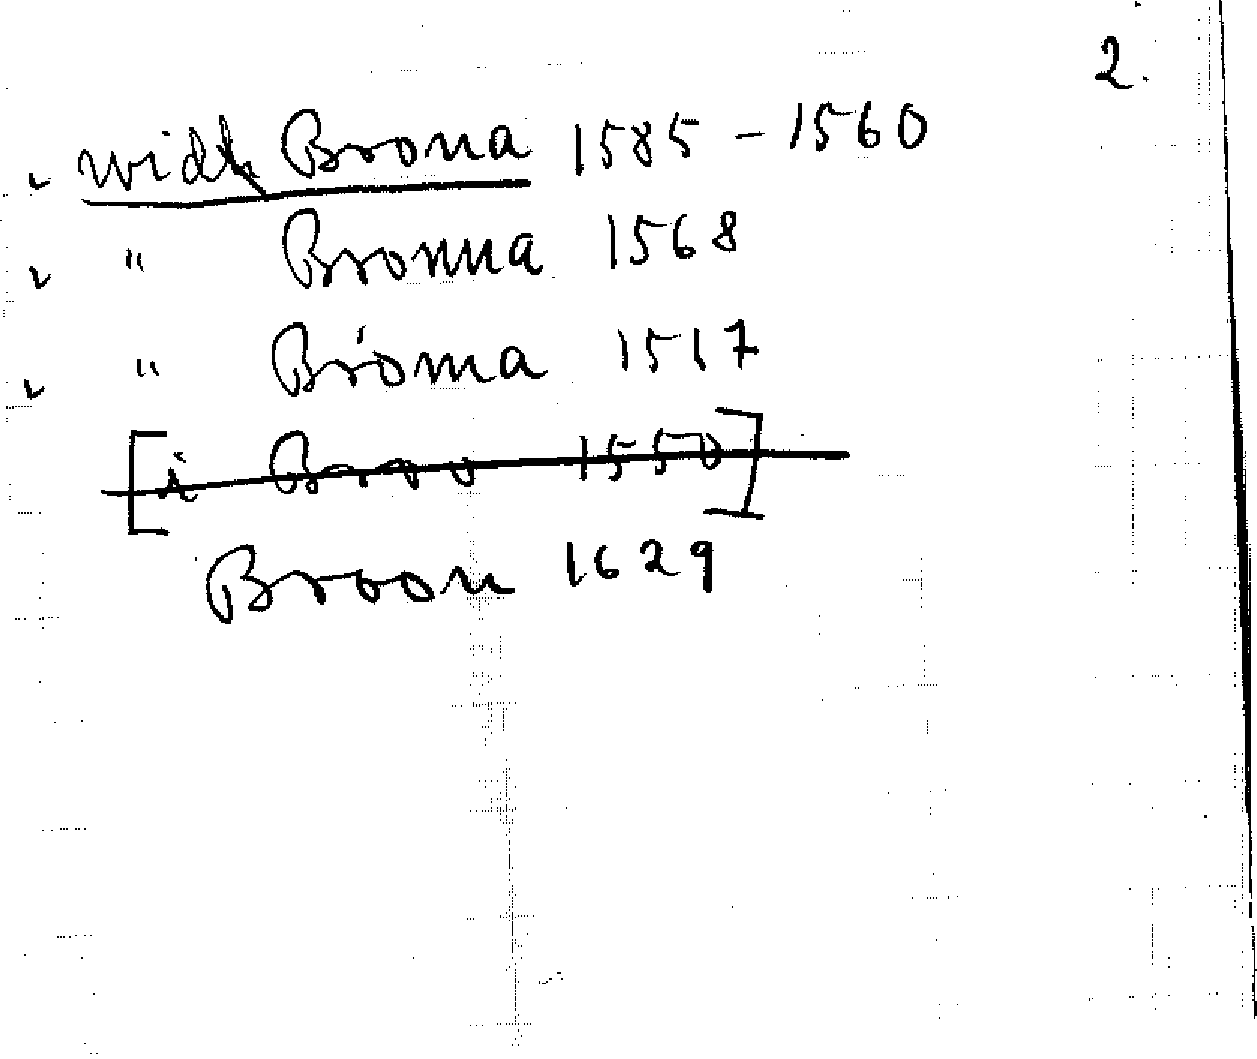 2.
widh Brona 1585 - 1560
" Bronna 1568
" Broma 1517
[i Broo 1550]
Broon 1629